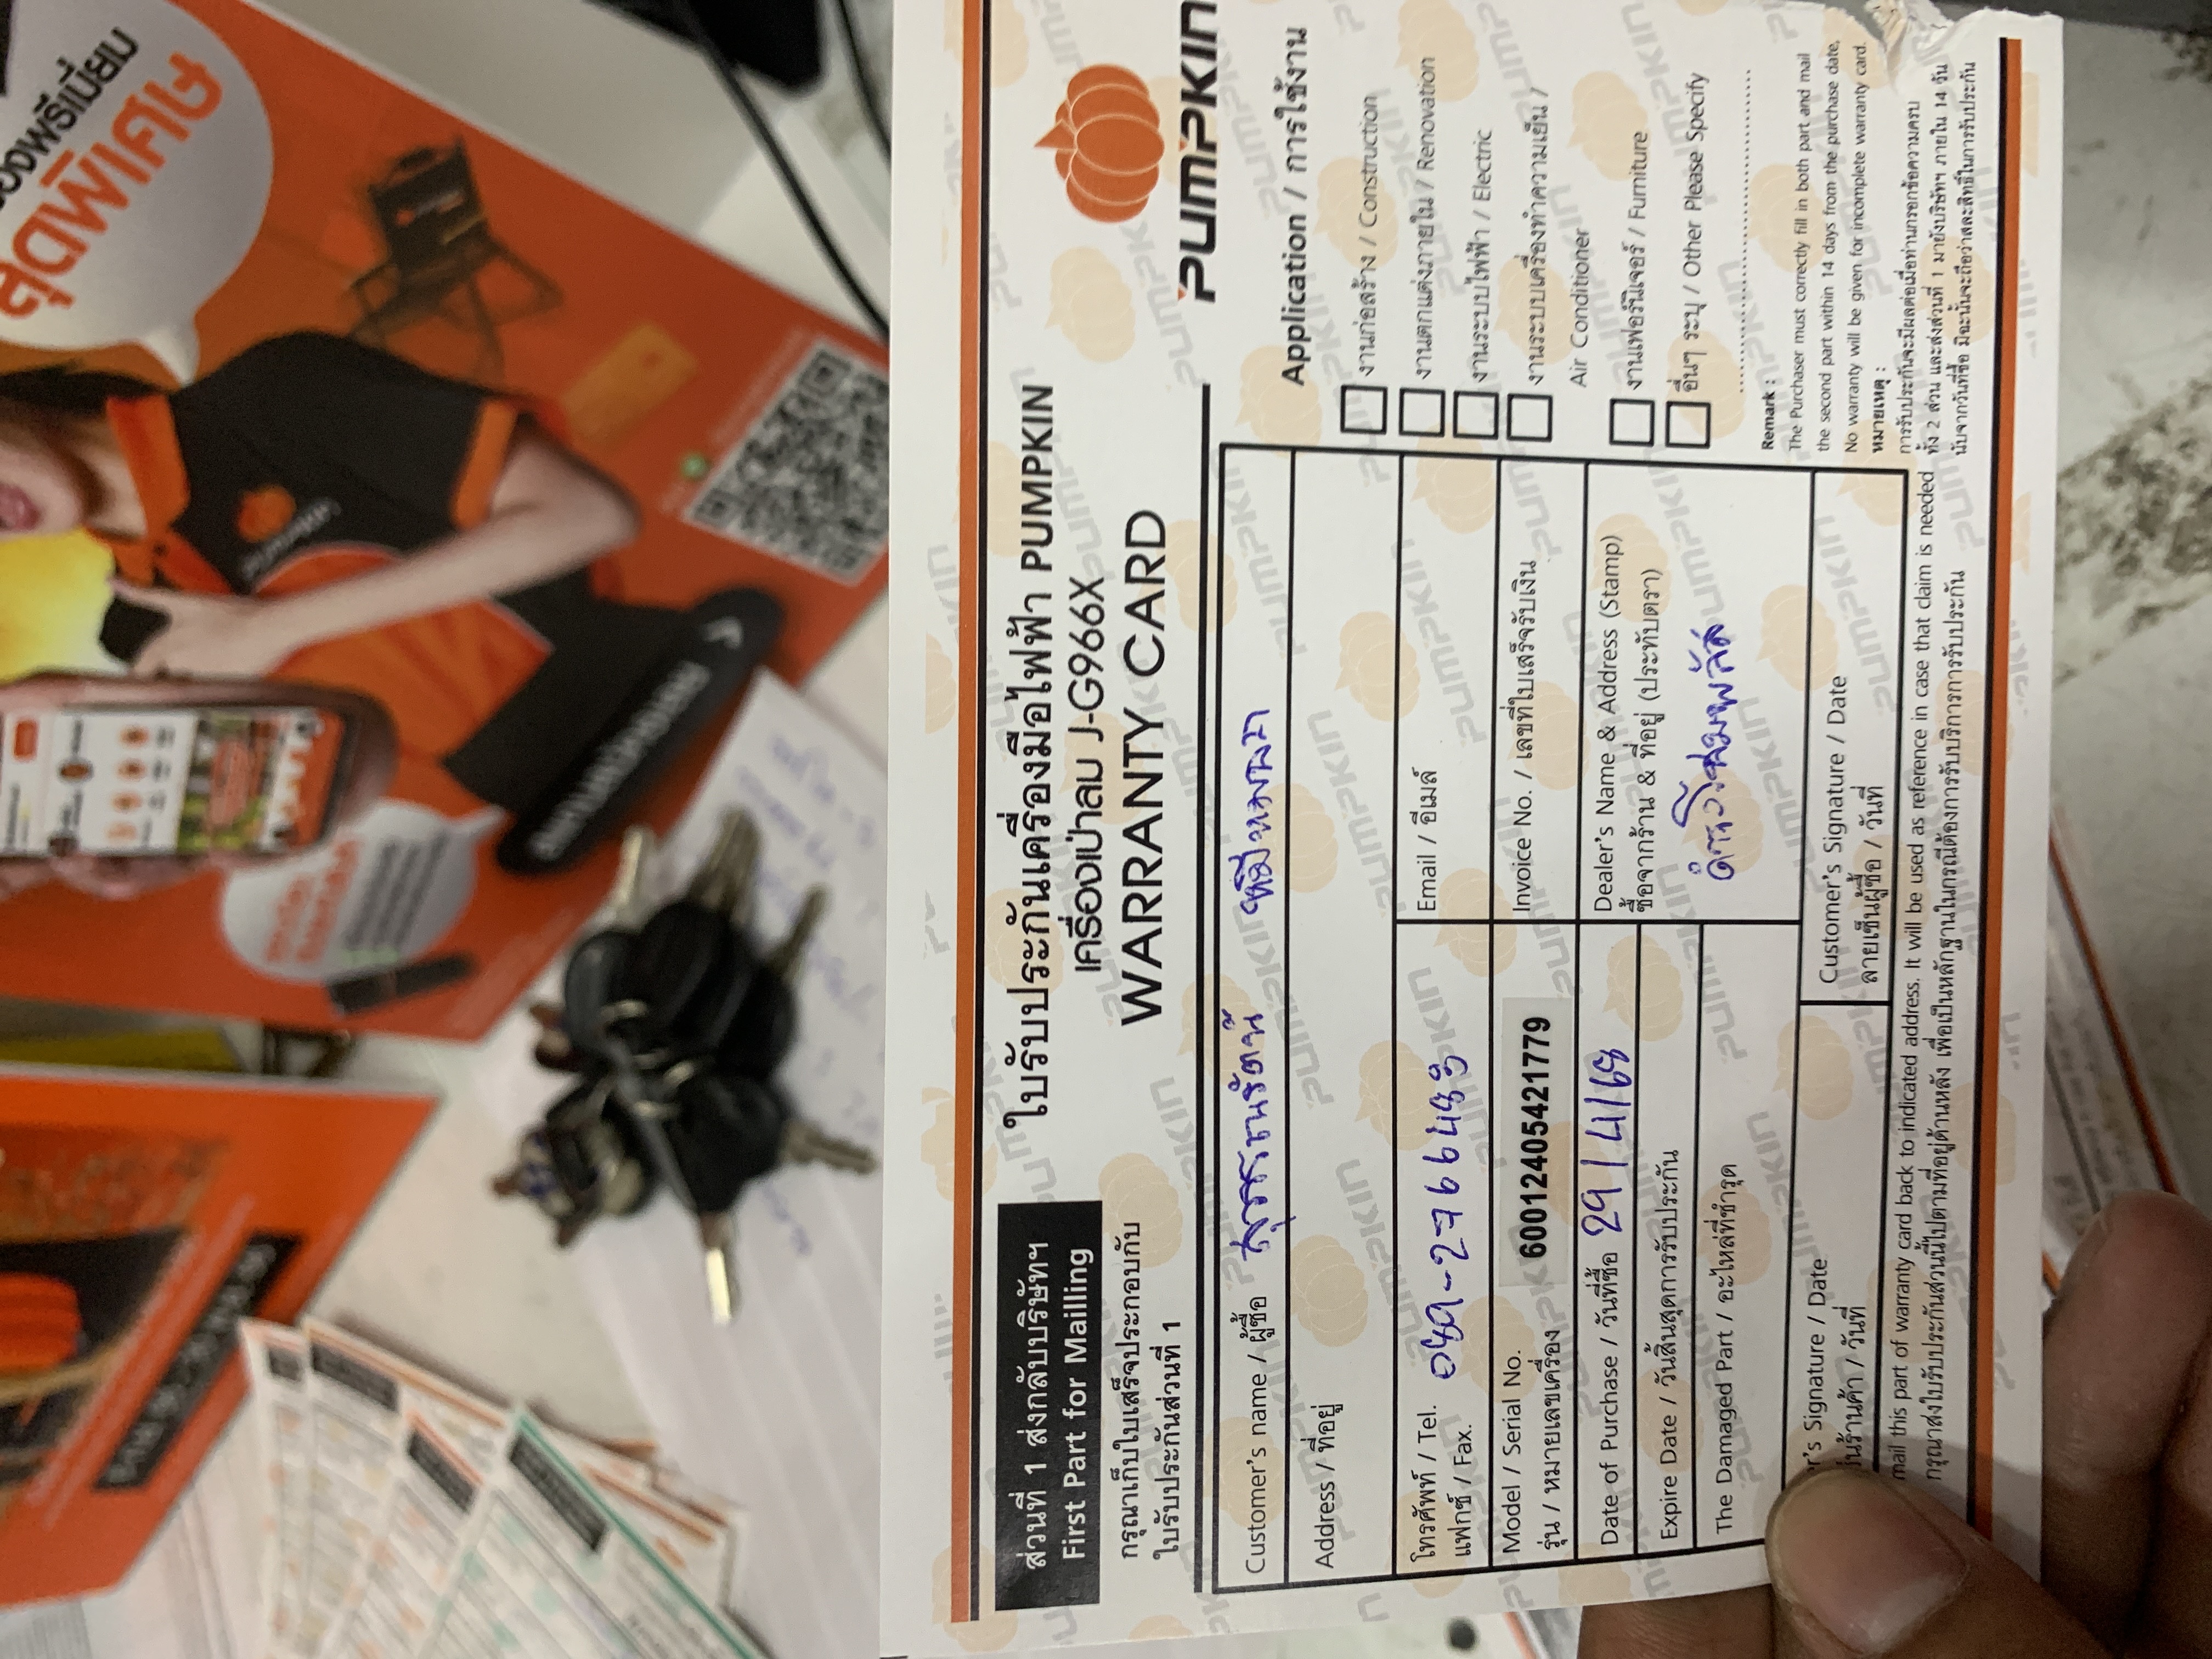 ส่วนที่ 1 ส่งกลับบริษัทฯ
First Part for Mailling
กรุณาเก็บใบเสร็จประกอบกับ
ใบรับประกันส่วนที่ 1
ใบรับประกันเครื่องมือไฟฟ้า PUMPKIN
เครื่องเป่าลม J-G966X
WARRANTY CARD
PUMPKIN
Customer's name / ผู้ซื้อ
Address / ที่อยู่
โทรศัพท์ / Tel. 089-2766483
แฟกซ์ / Fax.
Email / อีเมล์
Model / Serial No.
รุ่น / หมายเลขเครื่อง 60012405421779
Invoice No. / เลขที่ใบเสร็จรับเงิน
Date of Purchase / วันที่ซื้อ 29/4/68
Expire Date / วันสิ้นสุดการรับประกัน
The Damaged Part / อะไหล่ที่ชำรุด
Dealer's Name & Address (Stamp)
ซื้อจากร้าน & ที่อยู่ (ประทับตรา)
r's Signature / Date
ร้านค้า / วันที่
Customer's Signature / Date
ลายเซ็นผู้ซื้อ / วันที่
mail this part of warranty card back to indicated address. It will be used as reference in case that claim is needed
กรุณาส่งใบรับประกันส่วนนี้ไปตามที่อยู่ด้านหลัง เพื่อเป็นหลักฐานในกรณีต้องการรับบริการการรับประกัน
Application / การใช้งาน
งานก่อสร้าง / Construction
งานตกแต่งภายใน / Renovation
งานระบบไฟฟ้า / Electric
งานระบบเครื่องทำความเย็น /
Air Conditioner
งานเฟอร์นิเจอร์ / Furniture
อื่นๆ ระบุ / Other Please Specify
Remark :
The Purchaser must correctly fill in both part and mail
the second part within 14 days from the purchase date,
No warranty will be given for incomplete warranty card.
หมายเหตุ :
การรับประกันจะมีผลต่อเมื่อท่านกรอกข้อความครบ
ทั้ง 2 ส่วน และส่งส่วนที่ 1 มายังบริษัทฯ ภายใน 14 วัน
นับจากวันที่ซื้อ มิฉะนั้นจะถือว่าสละสิทธิ์ในการรับประกัน
ของพรีเมี่ยม
สุดพิเศษ